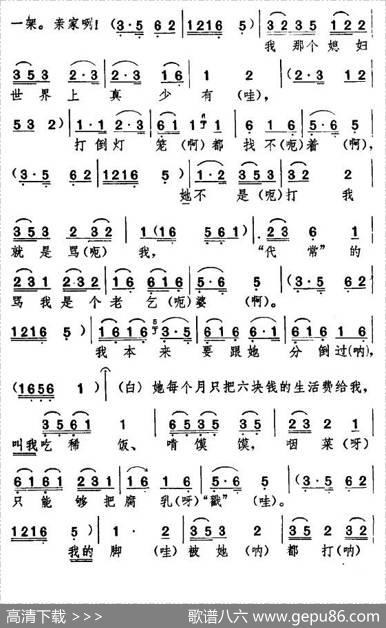 一架。亲家咧! (3·5 6 2 | 1216 5) | 3235 122 |
我 那个媳 妇
353 2·3 | 2·3 16 | 1 2 | (2·3 12 |
世界上真 少 有 (哇),
53 2) | 1·1 2·3 | 61 1 | 6 1 6 | 5·6 5 |
打倒灯 笼(啊)都 找 不(呃)着 (啊),
(3·5 62 | 1216 5) | 1 2·3 | 231 2 |
她不 是(呃)打 我
353 2 32 | 1(16 561) | .23 6 1 |
就 是 骂(呃) 我, “代 常” 的
231 231 | 2 1 6 12 | 5·6 5 | (3·5 62 |
骂 我 是 个 老 乞(呃)婆 (啊)。
1216 5) | 1616 3·5 | 6161 6·1 | 6165 6 |
我 本 来 要 跟 她 分 倒 过(呐),
(1656 1) | (白) 她每个月只把六块钱的生活费给我,
3561 1 | 6535 35 | 353 2 |
叫我吃稀 饭、 啃 馍 馍, 咽 菜(呀)
6161 231 | 16 1 6 | 5·6 5 | (3·5 62 |
只 能 够 把 腐 乳(呀)“戳” (哇)。
1216 5) | 1· 2 | 353 2 | 35 2 32 |
我的 脚 (哇) 被 她 (呐) 都 打(呐)
高清下载 >>> 歌谱八六 www.gepu86.com